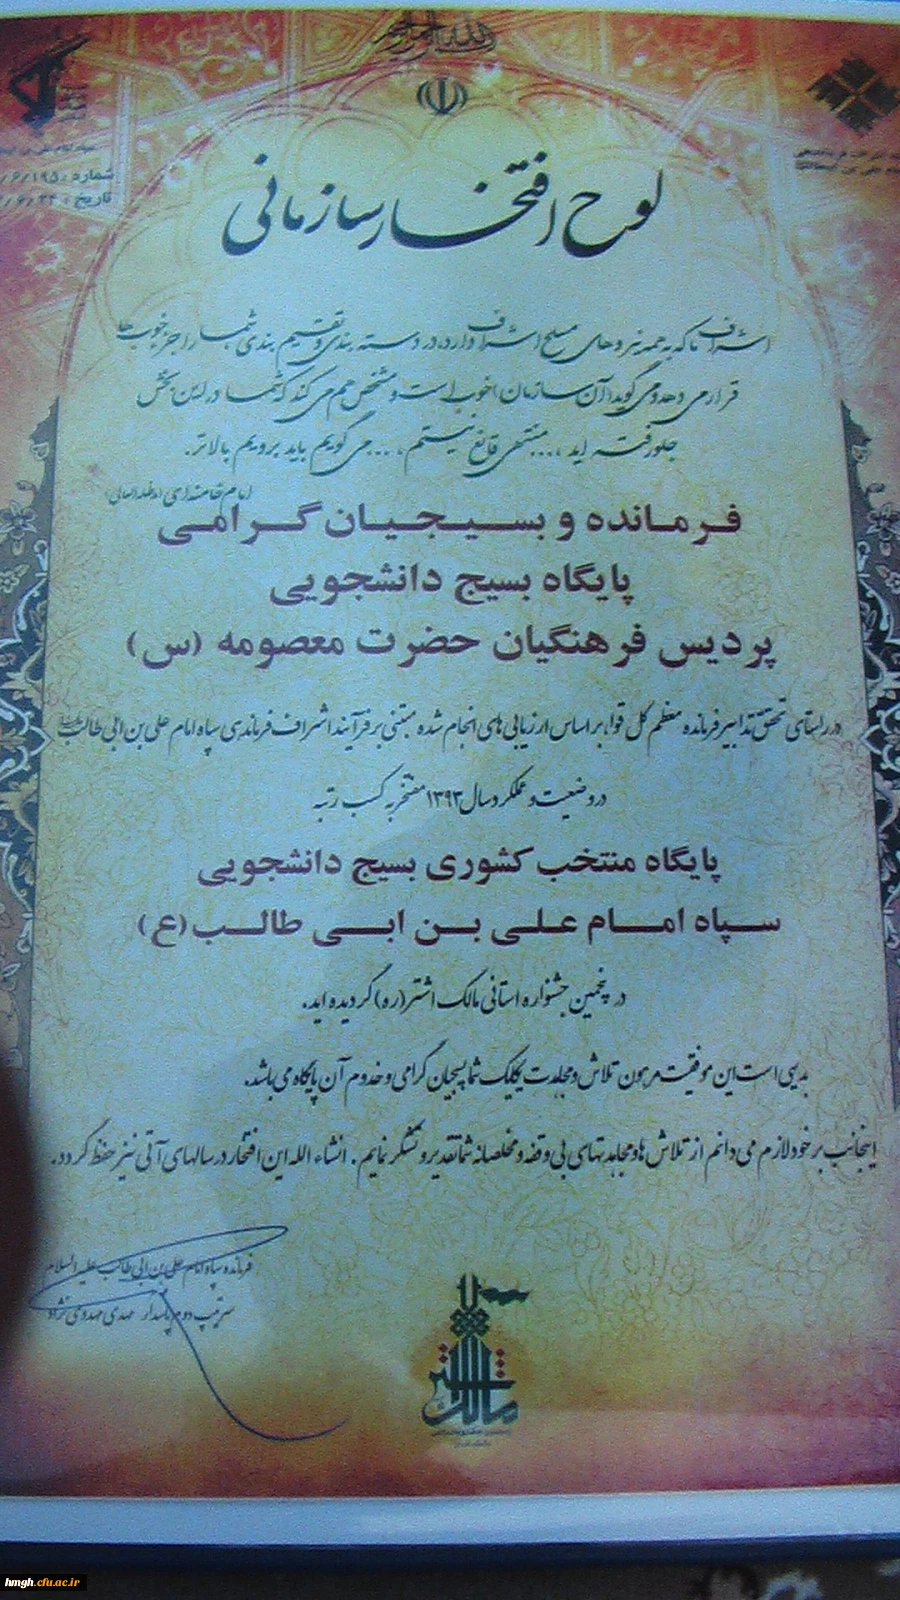 بسم الله الرحمن الرحیم
شماره: ۶/۱۹۵/
تاریخ: ۶/۲۴/
لوح افتخار سازمانی
اشراف ما که به همه نیروهای مسلح اشراف دارد، در دسته بندی و تقسیم بندی شما را جزء خوب ها
قرار می دهد و می گوید آن سازمان خوب است و مشخص هم می کند که شما در این بخش
جلو رفته اید ،... منتهی قانع نیستم، ... می گویم باید برویم بالاتر.
امام خامنه ای (مدظله العالی)
فرمانده و بسیجیان گرامی
پایگاه بسیج دانشجویی
پردیس فرهنگیان حضرت معصومه (س)
در راستای تحقق تدابیر فرمانده معظم کل قوا، بر اساس ارزیابی های انجام شده مبتنی بر فرآیند اشراف فرماندهی سپاه امام علی بن ابی طالب
در وضعیت و عملکرد سال ۱۳۹۳ مفتخر به کسب رتبه
پایگاه منتخب کشوری بسیج دانشجویی
سپاه امام علی بن ابی طالب (ع)
در پنجمین جشنواره استانی مالک اشتر (ره) گردیده اید.
بدیهی است این موفقیت مرهون تلاش و مجاهدت یکایک شما بسیجیان گرامی و خدوم آن پایگاه می باشد.
اینجانب بر خود لازم می دانم از تلاش ها و مجاهدتهای بی وقفه و مخلصانه شما تقدیر و تشکر نمایم. انشاء الله این افتخار در سالهای آتی نیز حفظ گردد.
فرمانده سپاه امام علی بن ابی طالب علیه السلام
سرتیپ دوم پاسدار مهدی مهدوی نژاد
مالک اشتر
hmgh.cfu.ac.ir